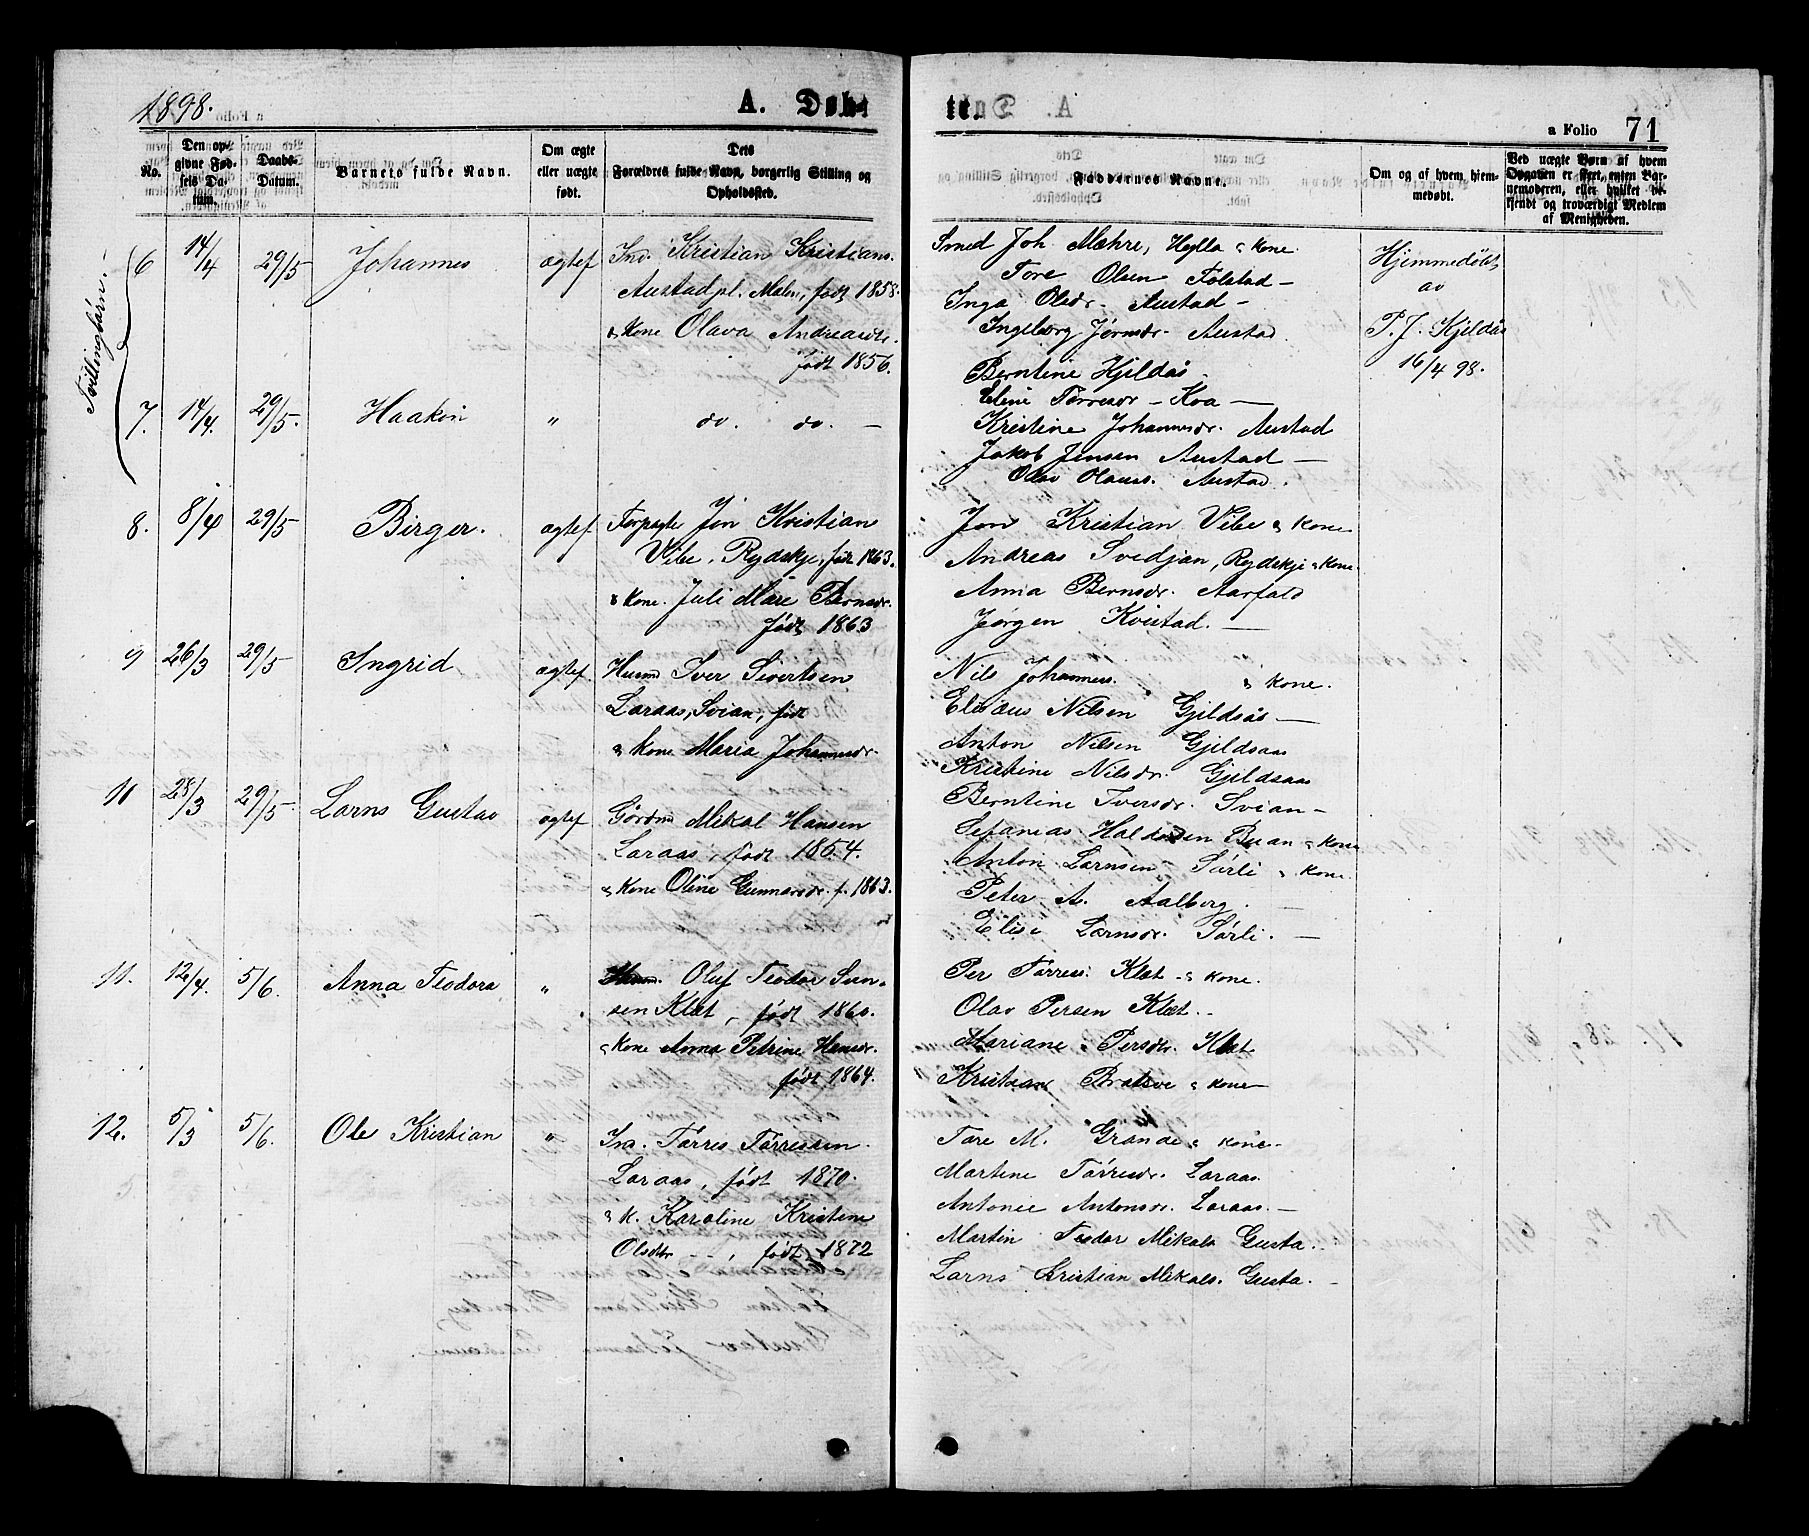 1898.
A. Døbt
A. Døbt
a Folio 71
No.
Den opgivne Fødsels Datum.
Daabs-Datum.
Barnets fulde Navn.
Om ægte eller uægte født.
Dets Forældres fulde Navn, borgerlig Stilling og Opholdssted.
Faddernes Navne.
Om og af hvem hjemmedøbt.
Ved uægte Børn af hvem Opgaven er skeet, enten Barnemoderen, eller hvilket bekjendt og troværdigt Medlem af Menigheden.
Tvillingbørn.
6 14/4 29/5 Johannes ægtef
Ind. Kristian Kristians.
Austad pl. Malm, født 1858.
& kone Olava Andreasdr.
født 1856.
Smed Joh. Mæhre, Hylla & kone.
Tore Olsen Følstad —
Inga Olsdr. Austad —
Ingeborg Jørnsdr. Austad
Berntine Kjeldås
Hjemmedöbt
av
P. J. Kjeldås
16/4 98.
7. 14/4. 29/5. Haakon " do. do. —
Eline Tørresdr — Kva —
Kristine Johannesdr. Austad
Jakob Jensen Austad —
Olav Olaus. Austad.
8. 8/4 29/5 Birger. ægtef.
Forpagte Jon Kristian
Vibe, Rydskje, føt 1863.
& kone. Juli Mare Bernsdr.
født 1863
Jon Kristian Vibe & kone
Andreas Svedjan, Rydskje & kone.
Anna Bernsdr. Aarfald
Jørgen Kvistad. —
9 26/3 29/5 Ingrid ægtef.
Husmd Iver Sivertsen
Laraas, Svian, født
& kone Maria Johannesdr.
Nils Johanness. & kone.
Elisæus Nilsen Gjeldsås —
Anton Nilsen Gjeldsaas
Kristine Nilsdr. Gjeldsaas
Berntine Iversdr. Svian —
10 28/3 29/5. Larns Gustav ægtef
Gårdmd Mikal Hansen
Laraas, født 1854.
& kone Oline Gunnarsdr. f. 1863.
Sefanias Haldosen Buan & kone
Anton Larnsen Sørli & kone.
Peter A. Aalberg. —
Elise Larnsdr. Sørli. —
11. 12/4. 5/6. Anna Teodora "
Oluf Teodor Svensen Klæt, født 1860.
& kone Anna Petrine Hansdr.
født 1864.
Per Tørress. Klæt & kone.
Olav Persen Klæt.
Mariane Persdtr. Klæt
Kristian Bratsve & kone
12. 5/3 5/6. Ole Kristian "
Ina. Tørres Tørressen
Laraas, født 1870.
& k. Karoline Kristine
Olsdtr — , født 1872
Tore M. Grande & kone.
Martine Tørresdr. Laraas.
Antonie Antonsdr. Laraas. —
Martin Teodor Mikals Gusta.
Larns Kristian Mikals. Gusta. —